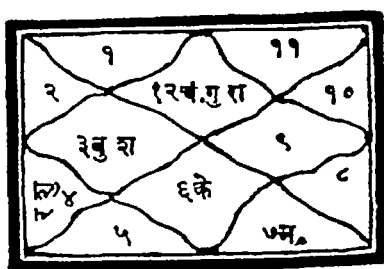 १ ११
२ १२ चं. गु रा १०
३ बु श ९
४ ८
६ के
५ ७ मं.